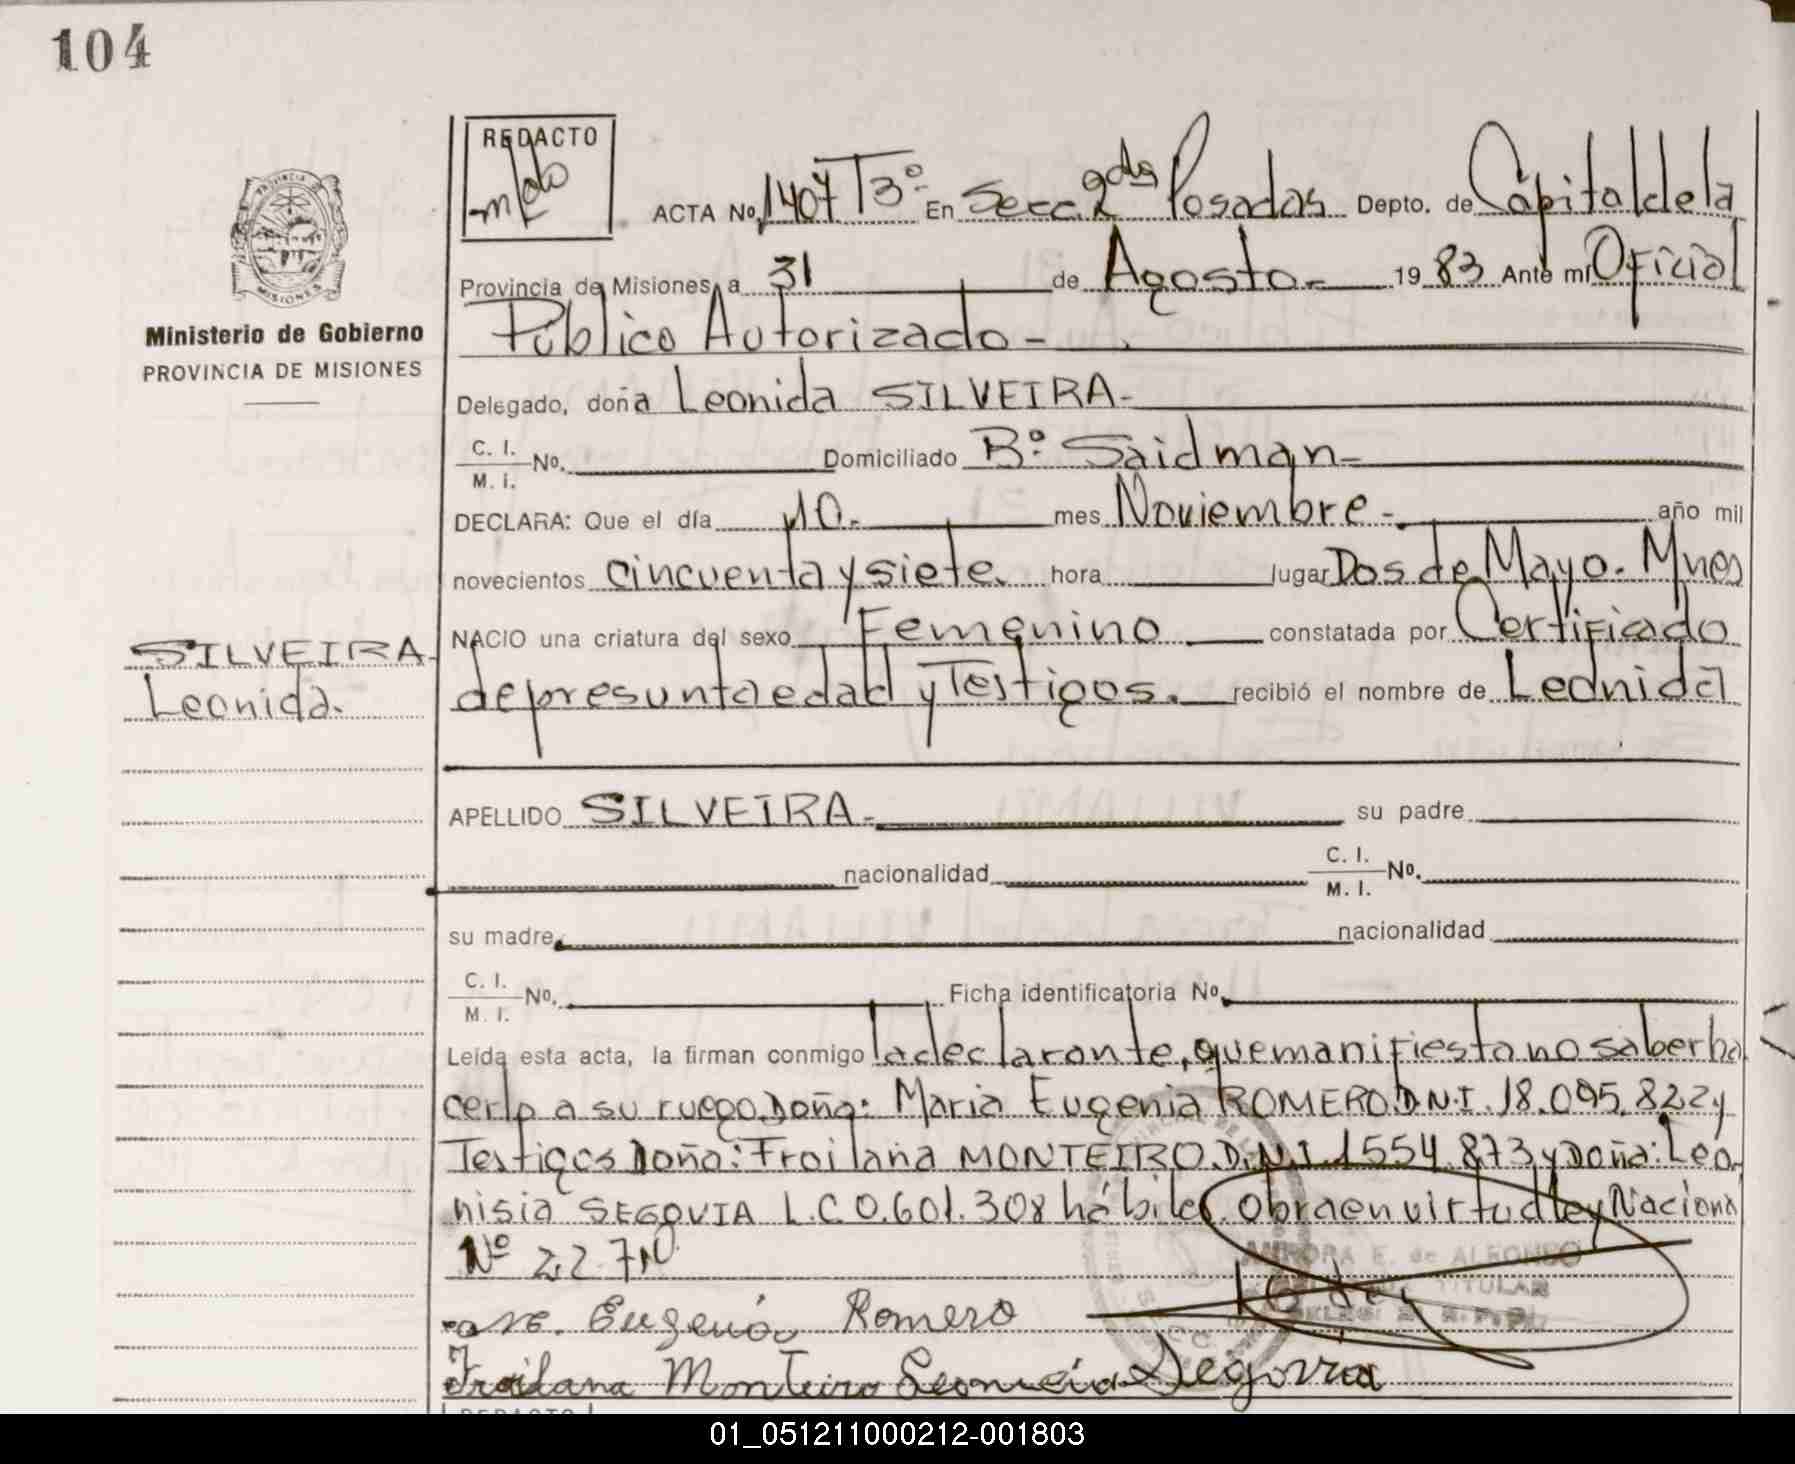 104
REDACTO
ACTA No. 1407 T3º- En Secc. 2da Posadas Depto. de Capital de la
Provincia de Misiones, a 31 de Agosto.- 1983 Ante mí Oficial
Público Autorizado -
Ministerio de Gobierno
PROVINCIA DE MISIONES
Delegado, doña Leonida SILVEIRA-
C. I.
M. I.
No. Domiciliado Bº: Saidman-
DECLARA: Que el día 10.- mes Noviembre - año mil
novecientos cincuenta y siete. hora lugar Dos de Mayo. Mnes
NACIO una criatura del sexo Femenino constatada por Certificado
SILVEIRA-
Leonida.
de presunta edad y Testigos. recibió el nombre de Leonida
APELLIDO SILVEIRA- su padre
nacionalidad C. I. M. I. No.
su madre nacionalidad
C. I. M. I. No. Ficha identificatoria No.
Leída esta acta, la firman conmigo la declarante, que manifiesta no saber ha
cerlo a su ruego Doña: Maria Eugenia ROMERO D.N.I. 18.095.822 y
Testigos Doña: Froilana MONTEIRO.D.N.I. 1554.873 y Doña: Leo
nisia SEGOVIA L.C 0.601.308 hábiles. Obra en virtud ley Naciona
Nº 22.710
Eugenia Romero
AURORA E. de ALFONSO
TITULAR
Froilana Monteiro Leonicia Segovia
REDACTO
01_051211000212-001803